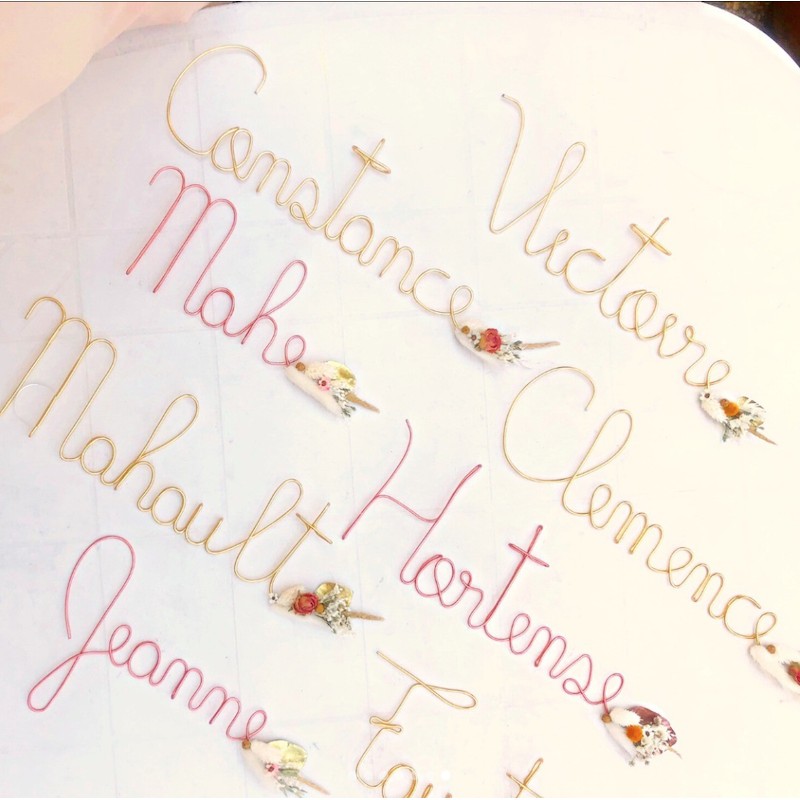 Constance
Victoire
Mahe
Mahault
Clemence
Hortense
Jeanne